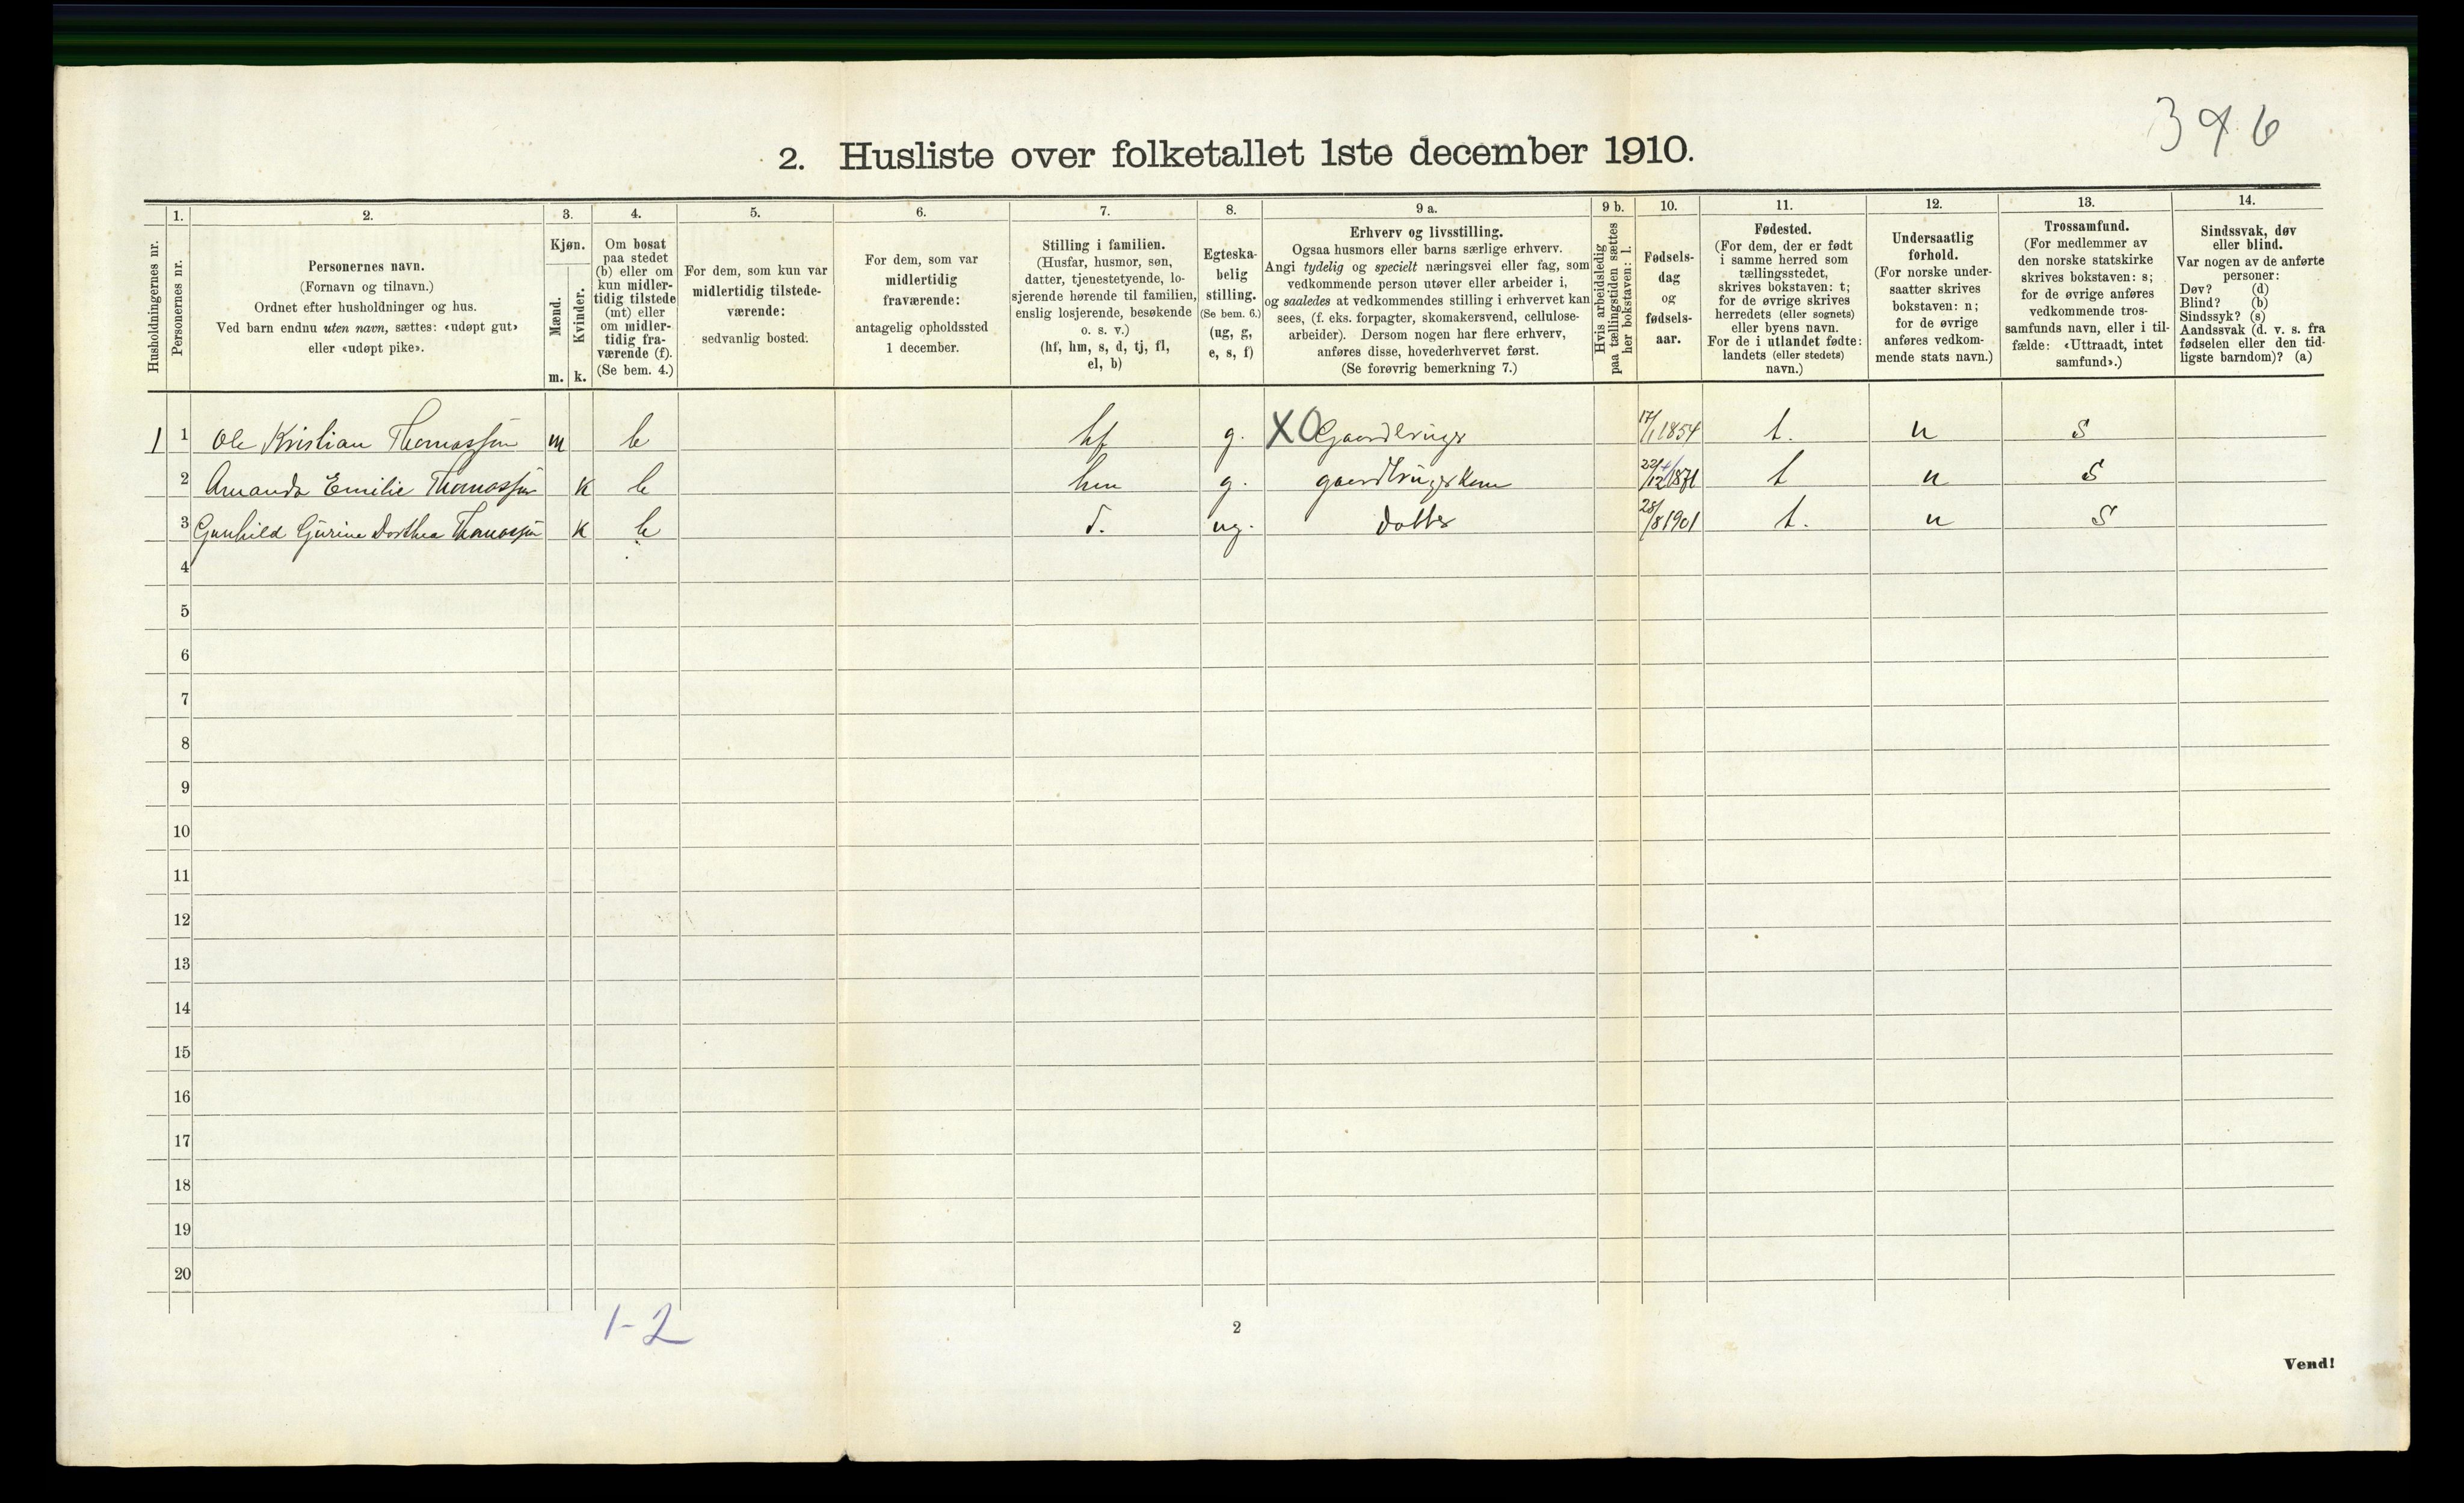 346
2. Husliste over folketallet 1ste december 1910.
Husholdningernes nr.
1.
Personernes nr.
2.
Personernes navn.
(Fornavn og tilnavn.)
Ordnet efter husholdninger og hus.
Ved barn endnu uten navn, sættes: «udøpt gut»
eller «udøpt pike».
3.
Kjøn.
Mænd.
m.
Kvinder.
k.
4.
Om bosat
paa stedet
(b) eller om
kun midler-
tidig tilstede
(mt) eller
om midler-
tidig fra-
værende (f).
(Se bem. 4.)
5.
For dem, som kun var
midlertidig tilstede-
værende:
sedvanlig bosted.
6.
For dem, som var
midlertidig
fraværende:
antagelig opholdssted
1 december.
7.
Stilling i familien.
(Husfar, husmor, søn,
datter, tjenestetyende, lo-
sjerende hørende til familien,
enslig losjerende, besøkende
o. s. v.)
(hf, hm, s, d, tj, fl,
el, b)
8.
Egteska-
belig
stilling.
(Se bem. 6.)
(ug, g,
e, s, f)
9 a.
Erhverv og livsstilling.
Ogsaa husmors eller barns særlige erhverv.
Angi tydelig og specielt næringsvei eller fag, som
vedkommende person utøver eller arbeider i,
og saaledes at vedkommendes stilling i erhvervet kan
sees, (f. eks. forpagter, skomakersvend, cellulose-
arbeider). Dersom nogen har flere erhverv,
anføres disse, hovederhvervet først.
(Se forøvrig bemerkning 7.)
9 b.
Hvis arbeidsledig
paa tællingstiden sættes
her bokstaven: l.
10.
Fødsels-
dag
og
fødsels-
aar.
11.
Fødested.
(For dem, der er født
i samme herred som
tællingsstedet,
skrives bokstaven: t;
for de øvrige skrives
herredets (eller sognets)
eller byens navn.
For de i utlandet fødte:
landets (eller stedets)
navn.)
12.
Undersaatlig
forhold.
(For norske under-
saatter skrives
bokstaven: n;
for de øvrige
anføres vedkom-
mende stats navn.)
13.
Trossamfund.
(For medlemmer av
den norske statskirke
skrives bokstaven: s;
for de øvrige anføres
vedkommende tros-
samfunds navn, eller i til-
fælde: «Uttraadt, intet
samfund».)
14.
Sindssvak, døv
eller blind.
Var nogen av de anførte
personer:
Døv? (d)
Blind? (b)
Sindssyk? (s)
Aandssvak (d. v. s. fra
fødselen eller den tid-
ligste barndom)? (a)
1 1 Ole Kristian Thomassen m b hf g. XO Gaardbruger 17/1 1854 t. n S
2 Amanda Emilie Thomassen K b hm g. gaardbrugerkone 22/12 1871 t n S
3 Gunhild Gurine Dorthea Thomassen K b d. ug. Datter 28/8 1901 t. n S
4
5
6
7
8
9
10
11
12
13
14
15
16
17
18
19
20
1-2
2
Vend!